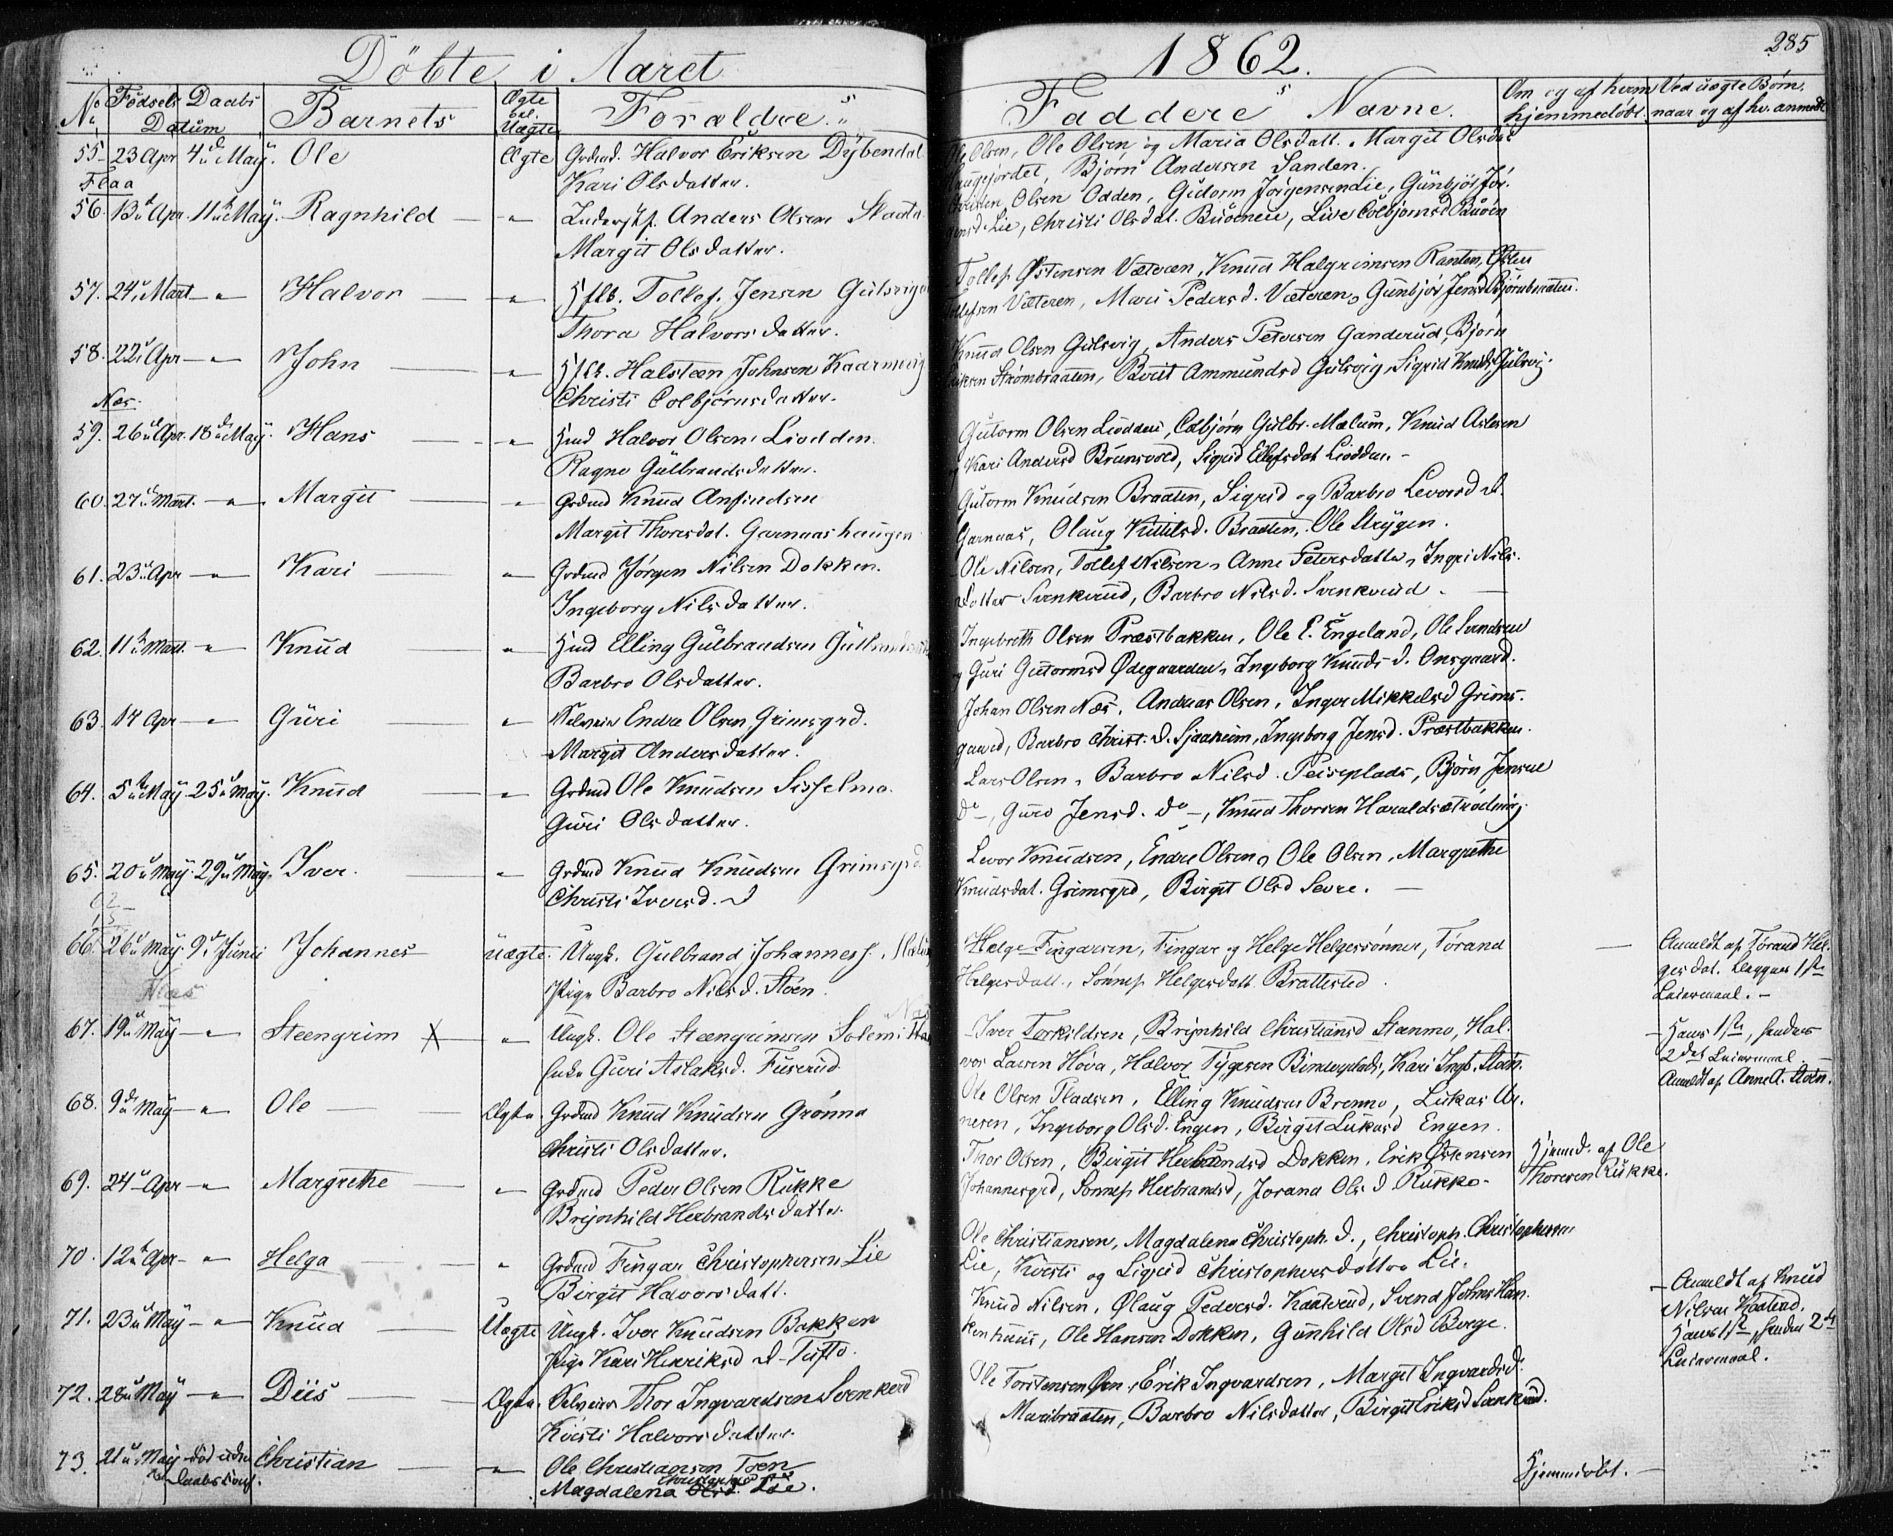 Döbte i Aaret 1862. 285
No Fødsels Daabs Datum Barnets Ægte el. Uægte Foraldre Faddere Navne. Om og af hvem hjemmedøbt. Ved uægte Børn, naar og af hv. anmeldt
55 23 Apr 4de May. Ole Ægte Grdmd. Halvor Eriksen Dybendal
Kari Olsdatter.
Ole Olsen, Ole Olsen og Maria Olsdatt. Margit Olsdat
Haugejordet, Bjørn Andersen Sanden.
Flaa
56. 13de Apr. 11te May. Ragnhild — " Anders Olsen
Margit Olsdatter.
Christen Olsen Odden, Gutorm Jørgensen Lie, Gunbjør Jør-
gensd. Lie, Christi Olsdat. Live Colbjørnsd
57. 24 Mart — " Halvor — " Tollef Jensen Gulsvig
Thora Halvorsdatter.
Tollef Østensen Væteren, Knud Halgrimsen Ranten, Østen
Tollefsen Væteren, Mari Pedersd. Væteren, Gunbjør Jensd
58. 22 Apr — " John — " Halsteen Johnsen
Christi Colbjørnsdatter.
Knud Olsen Gulsvig, Anders Petersen Ganderud, Bjørn
Eriksen Strømbraaten, Berit Ammundsd Gulsvig, Sigrid Knudsd Gulsvig.
Næs.
59. 26de Apr. 18de May. Hans — " Halvor Olsen Liodden.
Ragne Gulbrandsdatter.
Gutorm Olsen Liodden, Colbjørn Gulbr. Mælum, Knud Aslesen
og Kari Andersd Brunsvold, Sigrid Ellefsdat Liodden. –
60. 27de Mart. — " Margit — " Grdmd Knud Anfindsen
Margit Thoresdat. Garnaas haugen
Gutorm Knudsen Braaten, Sigrid og Barbro Levorsd
Garnaas, Olaug Kittilsd. Braaten, Ole Strygen.
61. 23 Apr — " Kari — " Grdmd Jörgen Nilsen Dokken.
Ingeborg Nilsdatter.
Ole Nilsen, Tollef Nilsen, Anne Petersdatter, Ingri Nils-
datter Svenkerud, Barbro Nilsd. Svenkerud.
62. 11te Mart. — " Knud — " Elling Gulbrandsen
Barbro Olsdatter.
Ingebreth Olsen Præstbakken, Ole E. Engeland, Ole Svendsen
og Guri Gutormsd Ødegaarden, Ingeborg Knuds d. Onsgaard.
63. 14 Apr — " Guri — " Selveier Endre Olsen Grimsgrd.
Margit Andersdatter.
Johan Olsen Næs, Andreas Olsen, Inger Mikkelsd Grims-
gaard, Barbro Christ. d. Sjaaheim, Ingeborg Jensd. Præstbakken.
64. 5te May 25de May. Knud — " Grdmd Ole Knudsen Sisselmo.
Guri Olsdatter.
Lars Olsen, Barbro Nilsd. Peiseplads, Bjørn Jensen
Do –, Guro Jensd. Do –, Knud Thorsen
65. 20 May. 29 May. Iver. — " Grdmd Knud Knudsen Grimsgrd
Christi Iversd.
Levor Knudsen, Endre Olsen, Ole Olsen, Margrethe
Knudsdat. Grimsgrd, Birgit Olsd Sevre. –
66. 26 May. 9de Junii Johannes Uægte. Ungk. Gulbrand Johanness.
Pige Barbro Nilsd. Støen.
Helge Fingarsen, Fingar og Helge Helgessønner, Tørand
Helgesdatt., Sønnef Helgesdatt. Bratterud.
— Anmeldt af Tørand Hel-
gesdat. Begges 1ste
Leiermaal. –
Næs
67. 19de May — " Steengrim X — " Ungk. Ole Steengrimsen
Enke Guri Aslaksd. Fuserud.
Iver Torkildsen, Brynhild Christiansd Stænmo, Hal-
vor Larsen Høva, Halvor
– Hans 1ste, hendes
2det Leiermaal.
Anmeldt af Anne A. Støen.
68. 9de May — " Ole — Ægte. Grdmd Knud Knudsen Grönna
Christi Olsdatter.
Ole Olsen Pladsen, Elling Knudsen Brenno, Lukas Ar-
nesen, Ingeborg Olsd. Engen, Birgit Lukasd Engen.
69. 24de Apr — " Margrethe — " Grdmd Peder Olsen Rukke
Brynhild Herbrandsdatter.
Thor Olsen, Birgit Herbrandsd Dokken, Erik Østensen
Johannesgrd, Sønnef Herbrandsd, Jorand Ols d. Rukke.
Hjemmed. af Ole
Thoresen Rukke.
70. 12te Apr — " Helga — " Grdmd Fingar Christophersen Lie
Birgit Halvorsdatt.
Ole Christiansen, Magdalena Christoph. d., Christoph. Christophersen
Lie, Kirsti og Sigrid Christophersdøttre Lie.
71. 23de May — " Knud — Uægte Ungk. Iver Knudsen Bakken
Pige Kari Henriksd Tufto.
Knud Nilsen, Ølaug Pedersd. Kaaterud, Svend Johns Han-
kenhuus, Ole Hansen Dokken, Gunhild Olsd Berge.
– Anmeldt af Knud
Nilsen Kaaterud.
Hans 1ste, hendes 2det
Leiermaal.
72. 28de May — " Diis — Ægte. Selveier Thor Ingvardsen Svenkerd
Kirsti Halvorsdatter.
Ole Torstensen Øen, Erik Ingvardsen, Margit Ingvardsd.
Maribraaten, Barbro Nilsdatter, Birgit Eriksd Svenkerud.
73. 21de May død uden Daabs Christian — " Ole Christiansen Toen
Magdalena Olsd. Christophersd Lie.
Hjemmedøbt. —